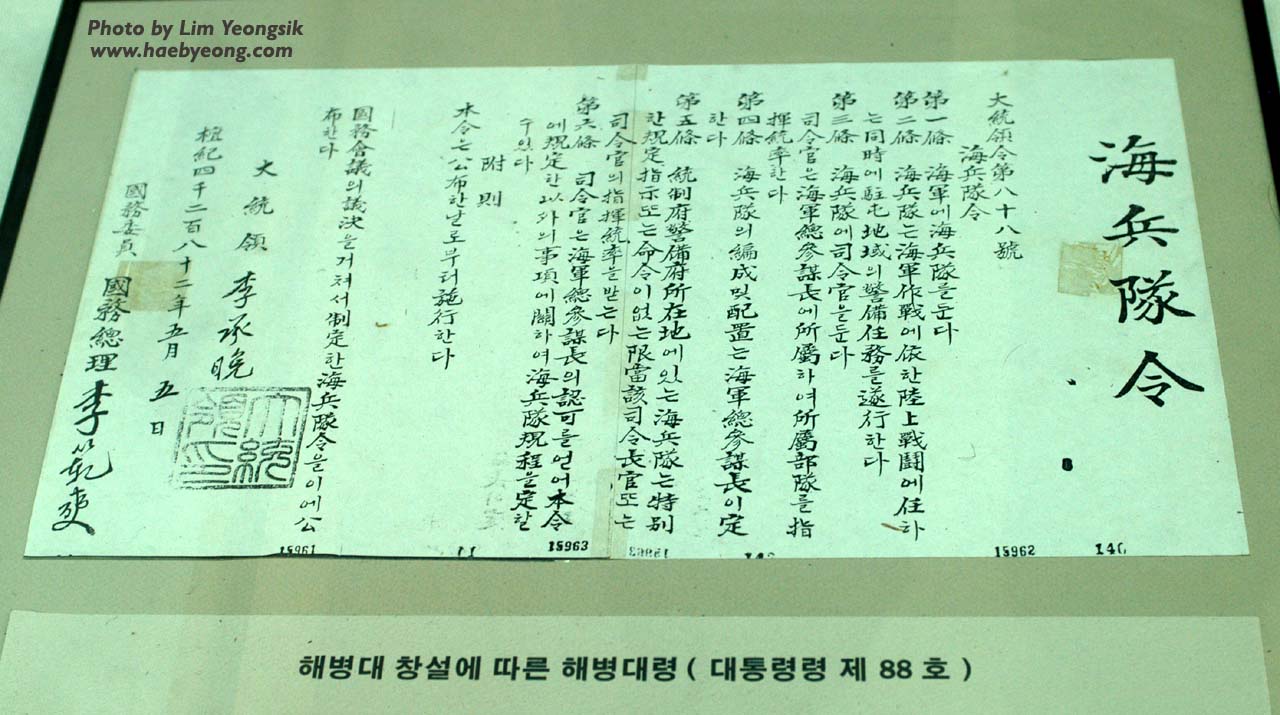 Photo by Lim Yeongsik
www.haebyeong.com
海兵隊令
大統領令第八十八號
海兵隊令
第一條 海軍에海兵隊를둔다
第二條 海兵隊는海軍作戰에依한陸上戰鬪에任하
는同時에駐屯地域의警備任務를遂行한다
第三條 海兵隊에司令官을둔다
司令官은海軍總參謀長에所屬하여所屬部隊를指
揮統率한다
第四條 海兵隊의編成및配置는海軍總參謀長이定
한다
第五條 統制府警備府所在地에있는海兵隊는特別
한規定指示또는命令이없는限當該司令長官또는
司令官의指揮統率을받는다
第六條 司令官은海軍總參謀長의認可를얻어本令
에規定한以外의事項에關하여海兵隊規程을定할
수있다
附則
本令은公布한날로부터施行한다
國務會議의議決을거쳐서制定한海兵隊令을이에公
布한다
大統領 李承晩
大統領印
檀紀四千二百八十二年五月五日
國務委員 國務總理 李範奭
15961
15963
15962
해병대 창설에 따른 해병대령 ( 대통령령 제 88 호 )